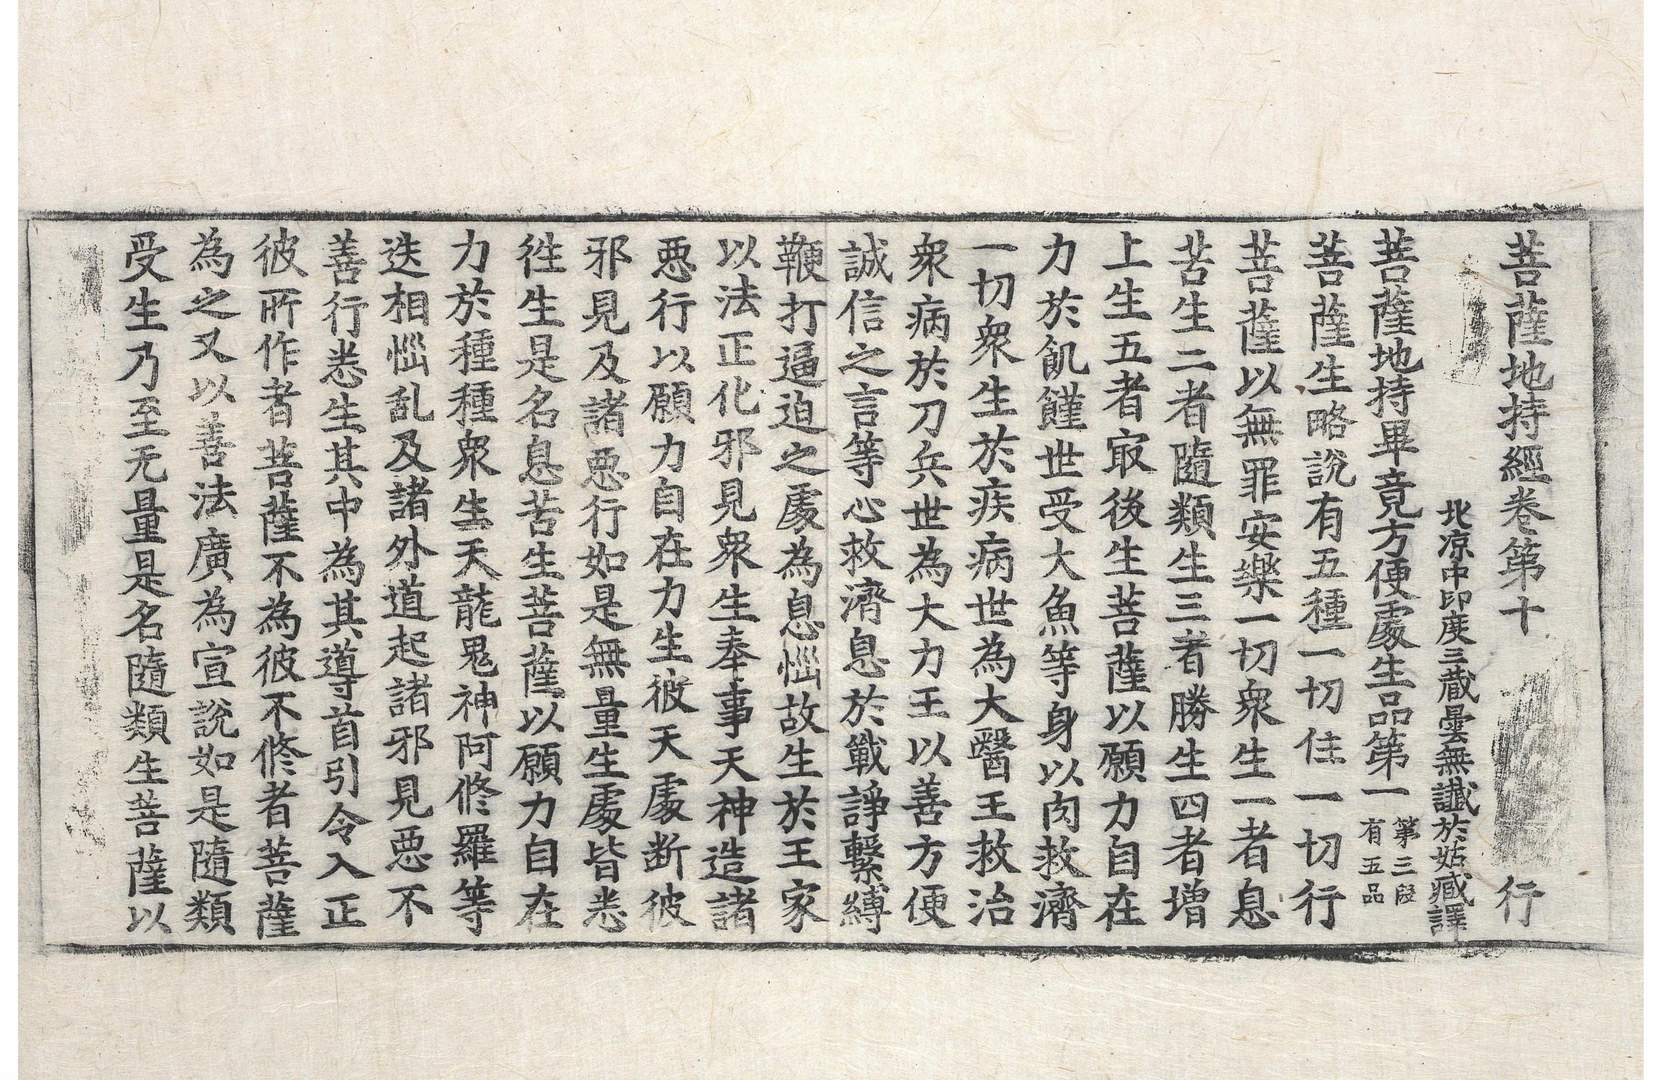 菩薩地持經卷第十 行
北凉中印度三藏曇無讖於姑臧譯
菩薩地持畢竟方便處生品第一 第三段有五品
菩薩生略說有五種一切住一切行
菩薩以無罪安樂一切衆生一者息
苦生二者隨類生三者勝生四者增
上生五者㝡後生菩薩以願力自在
力於飢饉世受大魚等身以肉救濟
一切衆生於疾病世為大醫王救治
衆病於刀兵世為大力王以善方便
誠信之言等心救濟息於戰諍繫縛
鞭打逼迫之處為息惱故生於王家
以法正化邪見衆生奉事天神造諸
惡行以願力自在力生彼天處断彼
邪見及諸惡行如是無量生處皆悉
徃生是名息苦生菩薩以願力自在
力於種種衆生天龍鬼神阿脩羅等
迭相惱乱及諸外道起諸邪見惡不
善行悉生其中為其導首引令入正
彼所作者菩薩不為彼不脩者菩薩
為之又以善法廣為宣說如是隨類
受生乃至无量是名隨類生菩薩以